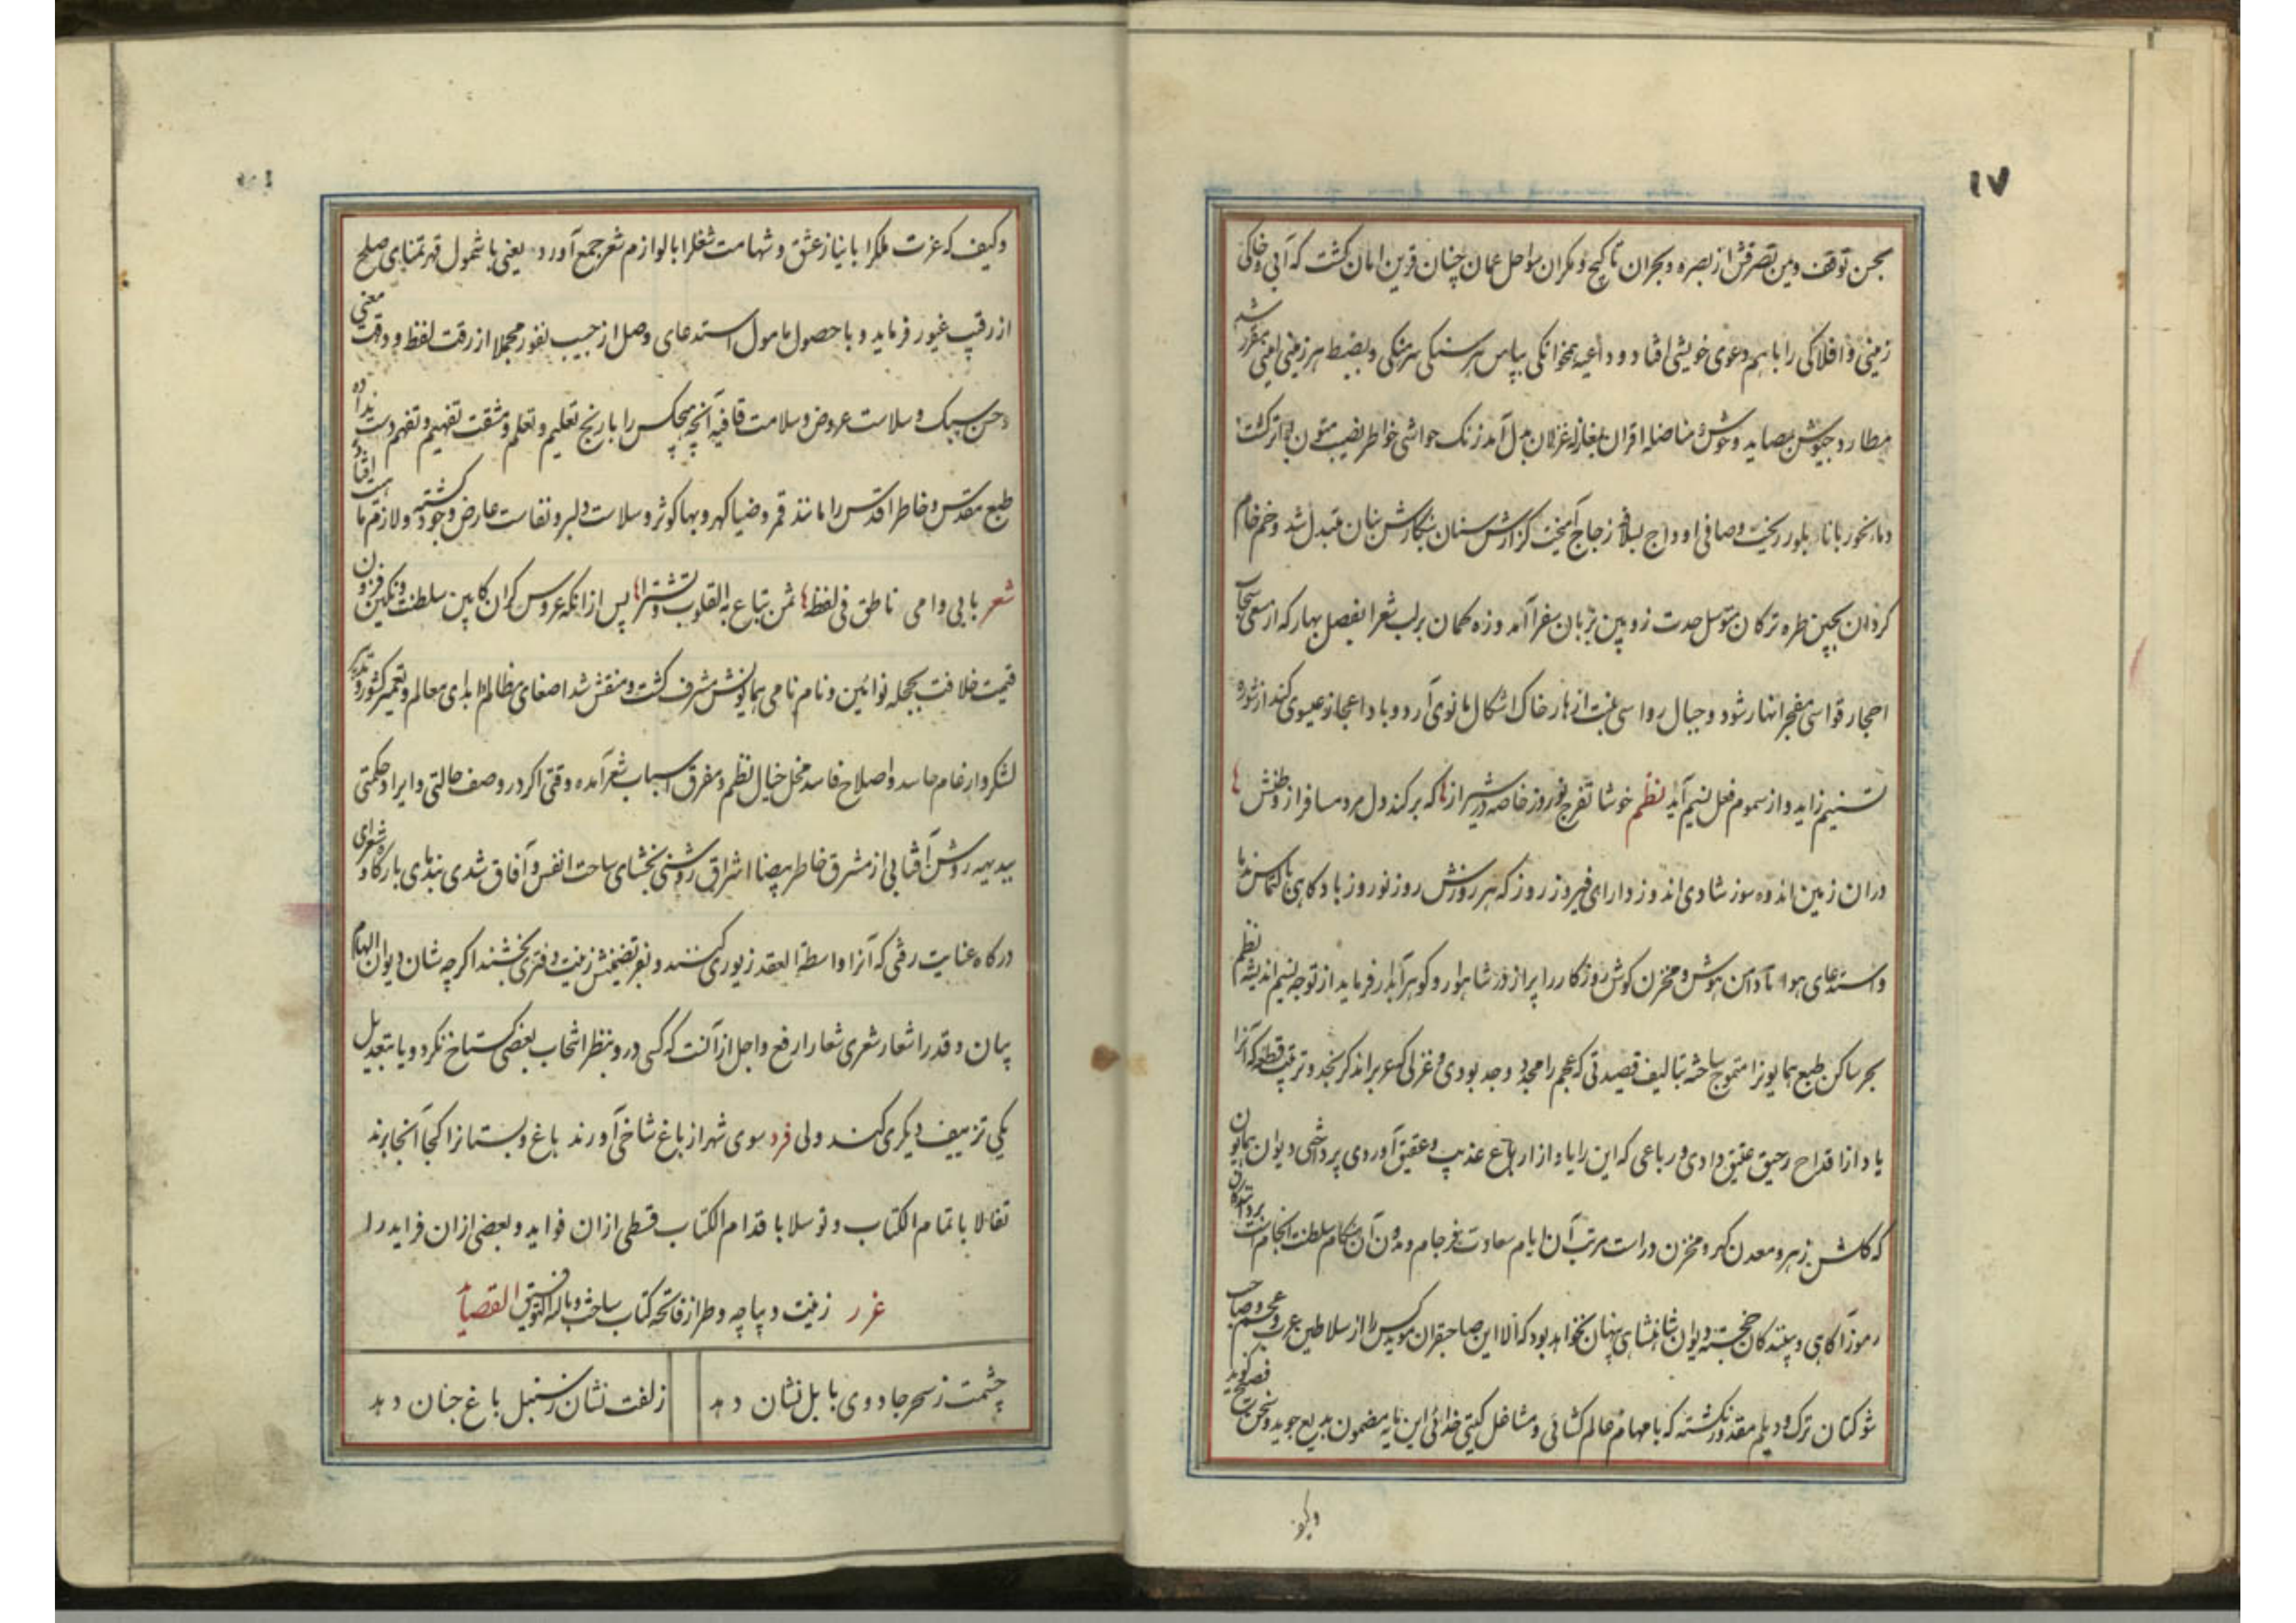 ۱۷
بحسن توقف ویمن تصرفش از بصره و بحران تا کیج و مکران سواحل عمان چنان قرین امان کشت که آبی و خاکی
زمینی و افلاکی را با هم دعوی خویشی افتاد و داعیه همخوانکی بپاس هر سنکی سرهنکی و بضبط هر زمینی امینی مقرر شد
مطارد جیوش بمصاید وحوش و مناضله اقران بمغازله غزلان بدل آمد زنک حواشی خواطر نصیب متون بواتر کشت
دماء نحور با ناء بلور ریخت و صافی اوداج بسلاف زجاج آمیخت کزارش سنان بنکارش بنان متبدل شد و خم خام
کردان بچین طره ترکان متوسل حدت زوبین بزبان سفرا آمد وزه کمان بر لب شعرا بفصل بهار که از سعی سحاب
احجار قواسی مفجر انهار شود و جبال رواسی منبت ازهار خاک اشکال مانوی آرد و باد اعجاز عیسوی کند از شوره
تسنیم زاید و از سموم فعل نسیم آید نظم خوشا تفرج نوروز خاصه در شیراز ها که بر کند دل مرد مسافر از وطنش ها
در ان زمین اندوه سوز شادی اندوز دارای فیروز روز که هر روزش روز نوروز باد کاهی بالتماس ندما
و استدعای هوا تا دامن هوش و مخزن کوش روزکار را پر از در شاهوار و کوهر آبدار فرماید از توجه نسیم اندیشه نظم
بحر ساکن طبع همایونرا متموج ساخته بتالیف قصیدتی که عجم را مجدد وجد بودی و غزلی که عرب را نذکر نجد و ترتیب قطعه که آنرا
یاد از اقداح رحیق عتیق دادی و رباعی که این را یاد از ارباع عذیب و عقیق آوردی پرداختی دیوان همایون
که کلشن زهر و معدن کهر و مخزن دراست مرتب آن ایام سعادت فرجام و مدون آن هنکام سلطنت انجام است بر دانندکان
رموز آکاهی و بینندکان خجسته دیوان شاهنشاهی پنهان نخواهد بود که الا این صاحبقران مؤید کس را از سلاطین عرب و عجم و صاحب
شوکتان ترک و دیلم مقدور نکشته که با مهام عالم کشائی و مشاغل کیتی خدائی این پایه مضمون بدیع جوید و سخن فصیح کوید
وکیف
وکیف که عزت ملکرا با نیاز عشق و شهامت شغلرا با لوازم شعر جمع آورد یعنی با شمول قهر تمنای صلح
از رقیب غیور فرماید و با حصول مامول استدعای وصل از حبیب نفور مجملا از رقت لفظ و دقت معنی
و حسن سبک و سلاست عروض و سلامت قافیه آنچه هیچکس را با رنج تعلیم و تعلم و مشقت تفهیم و تفهم دست نداده
طبع مقدس و خاطر اقدس را مانند قمر و ضیا کهر و بها کوثر و سلاست دلبر و نفاست عارض وجود کشته و لازم ماهیت
شعر بابی و امی ناطق فی لفظه ها ثمن تباع به القلوب و تشترا ها پس از انکه عروس کران کابین سلطنت و نکین فزون
قیمت خلافت بحجله نو آئین و نام نامی همایونش مشرف کشت و منقش شد اصغای مظالم و ابدای معالم و تعمیر کشور و تدبیر
لشکر و ارغام حاسد و اصلاح فاسد مخل خیال نظم و مفرق اسباب شعر آمده وقتی اکر در وصف حالتی و ایراد حکمتی
ببدیهه روشن آفتابی از مشرق خاطر بیضا اشراق روشنی بخشای ساحت انفس و آفاق شدی ندمای بارکاه و شعرای
درکاه عنایت رقمی که آنرا واسطة العقد زیوری کنند و بفر تضمینش زینت دفتری بخشند اکر چه شان دیوان الهام
بیان و قدر اشعار شعری شعار ارفع و اجل از آنست که کسی در و بنظر انتخاب بعضی کستاخ نکرد و یا بتعدیل
یکی تزییف دیکری کند ولی فرد سوی شهر از باغ شاخی آورند باغ و بستانرا کجا آنجا برند
تفائلا باتمام الکتاب و توسلا باقدام الکتاب قسطی از ان فواید و بعضی از ان فراید را
غرر زینت دیباچه و طراز فاتحه کتاب ساخت وبالله التوفیق القصاید
چشمت ز سحر جادوی بابل نشان دهد زلفت نشان ز سنبل باغ جنان دهد